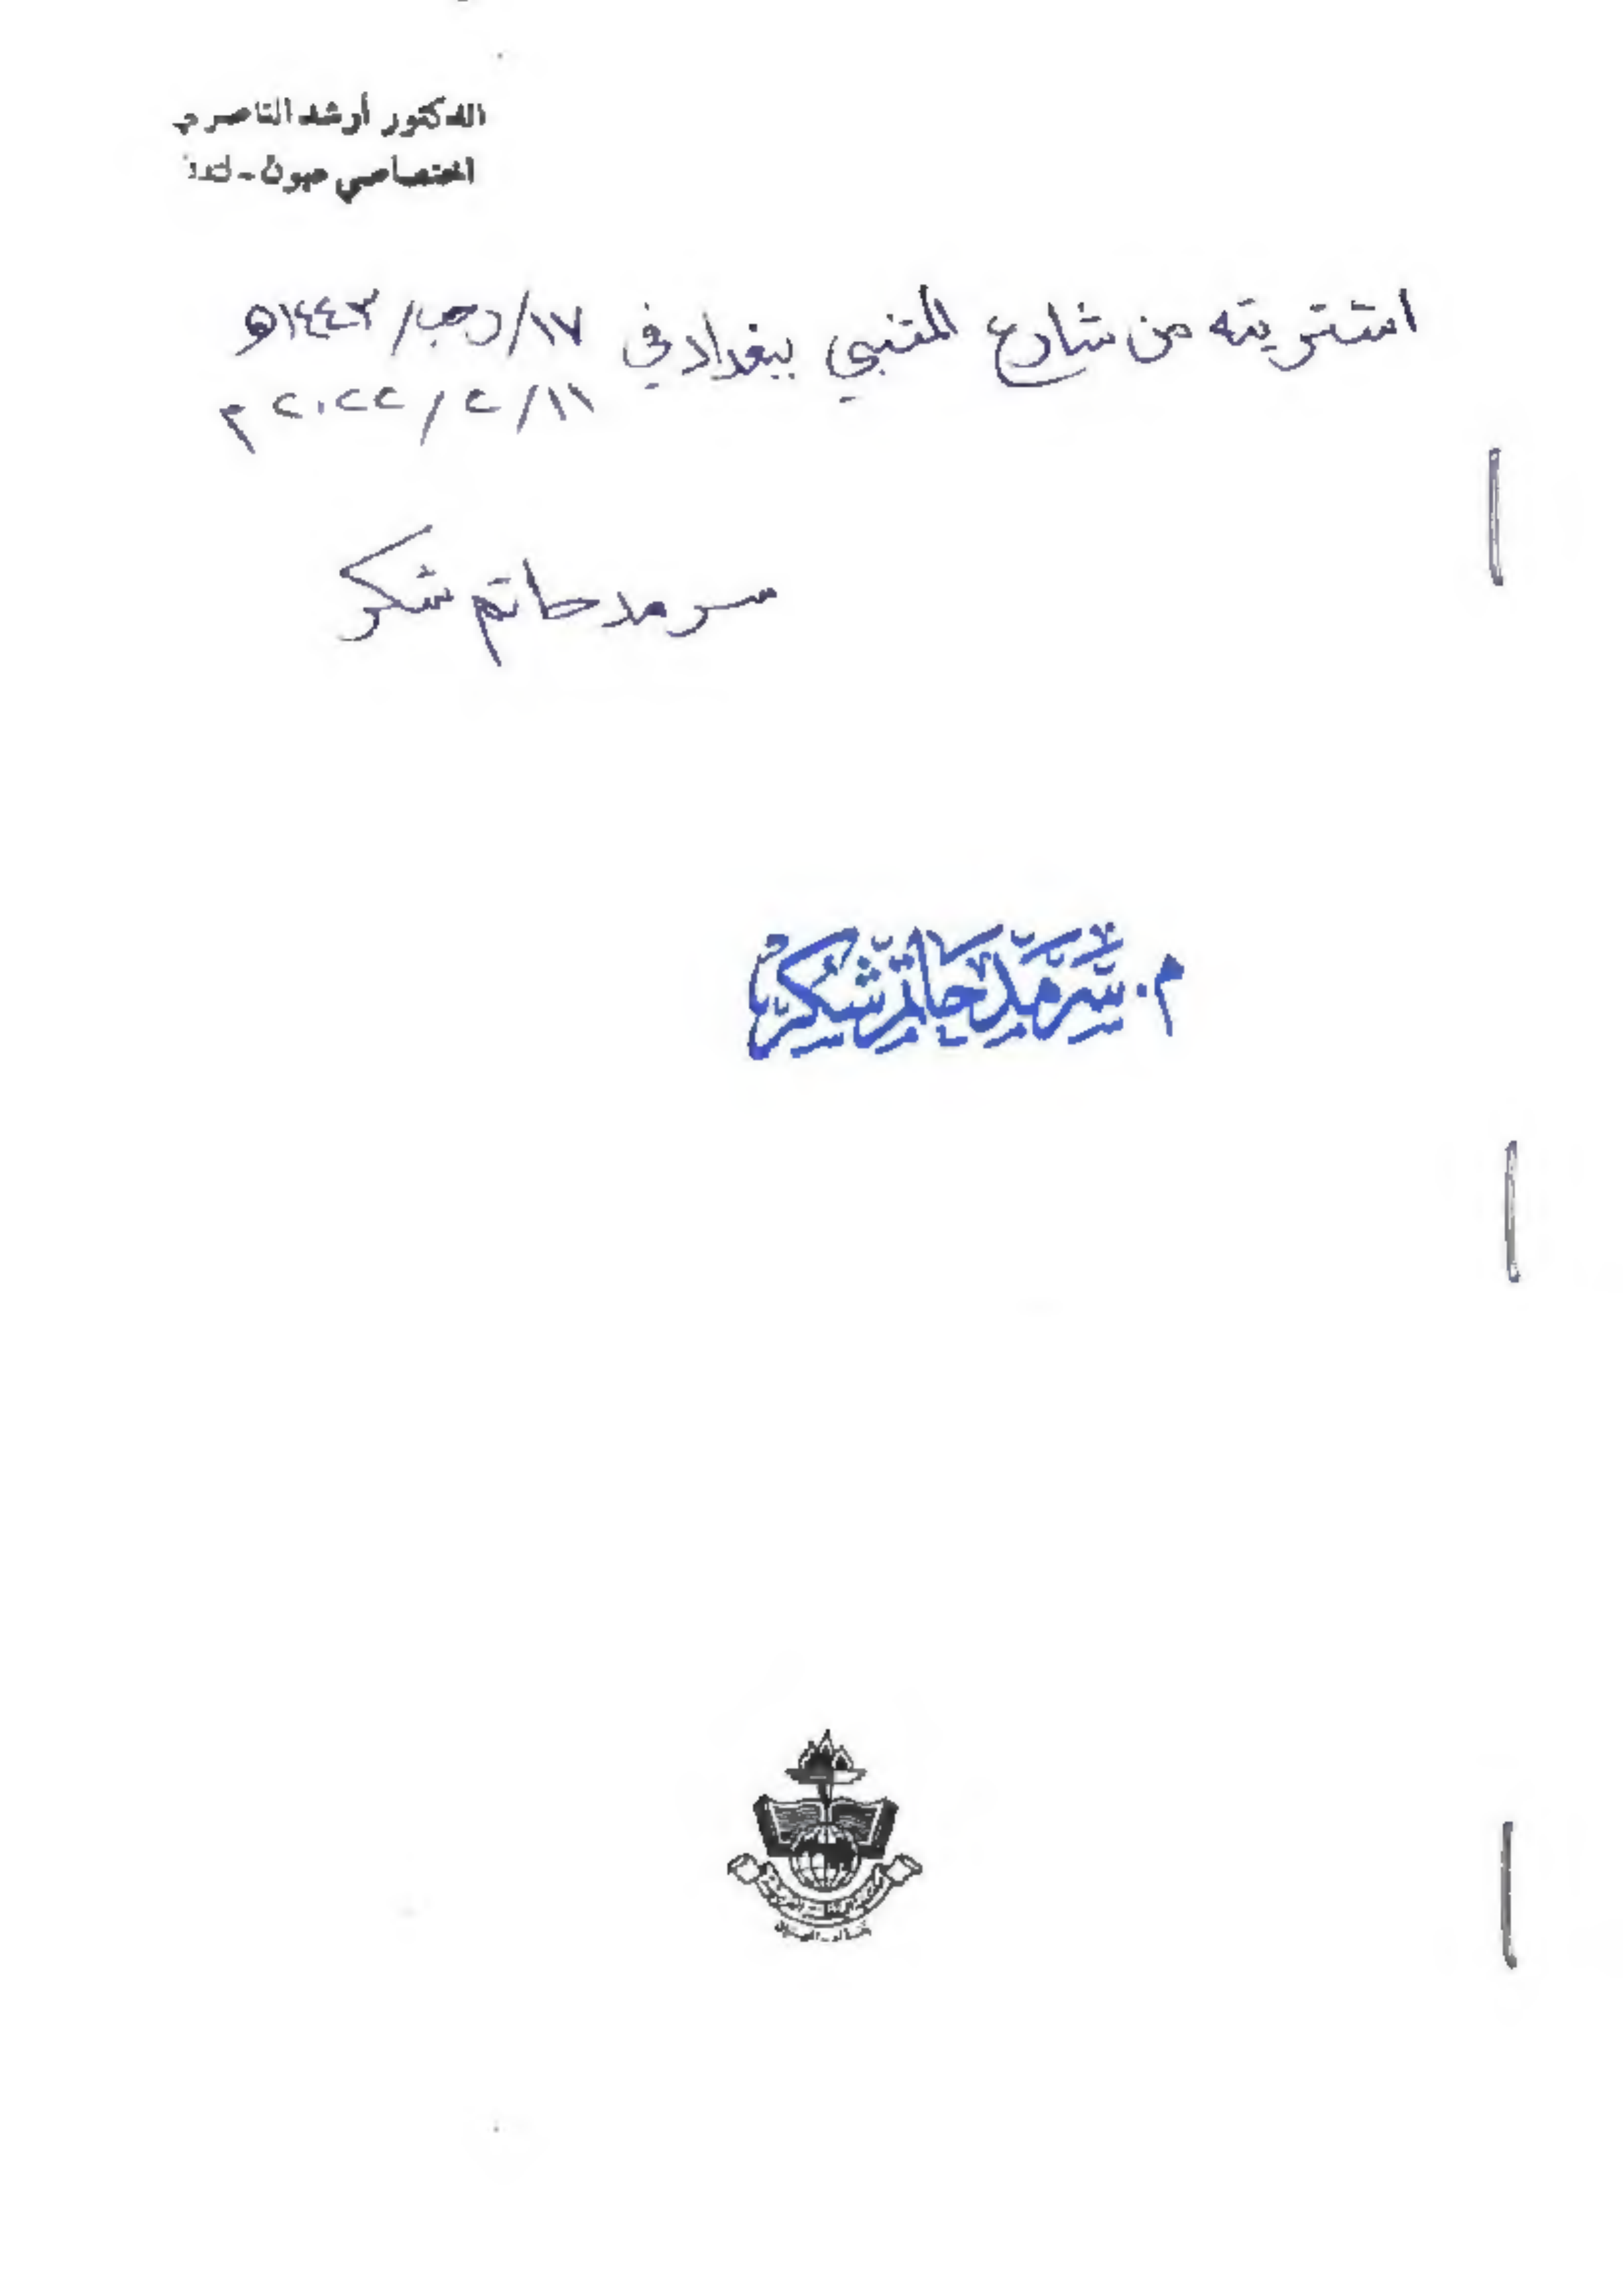 الدكتور أرشد الناصري
اختصاصي عيون - لندن
اشتريته من شارع المتنبي ببغداد في ١٧/رجب/١٤٤٣هـ
١٨/٢/٢٠٢٢م
سرمد حاتم شكر
م. سرمد حاتم شكر